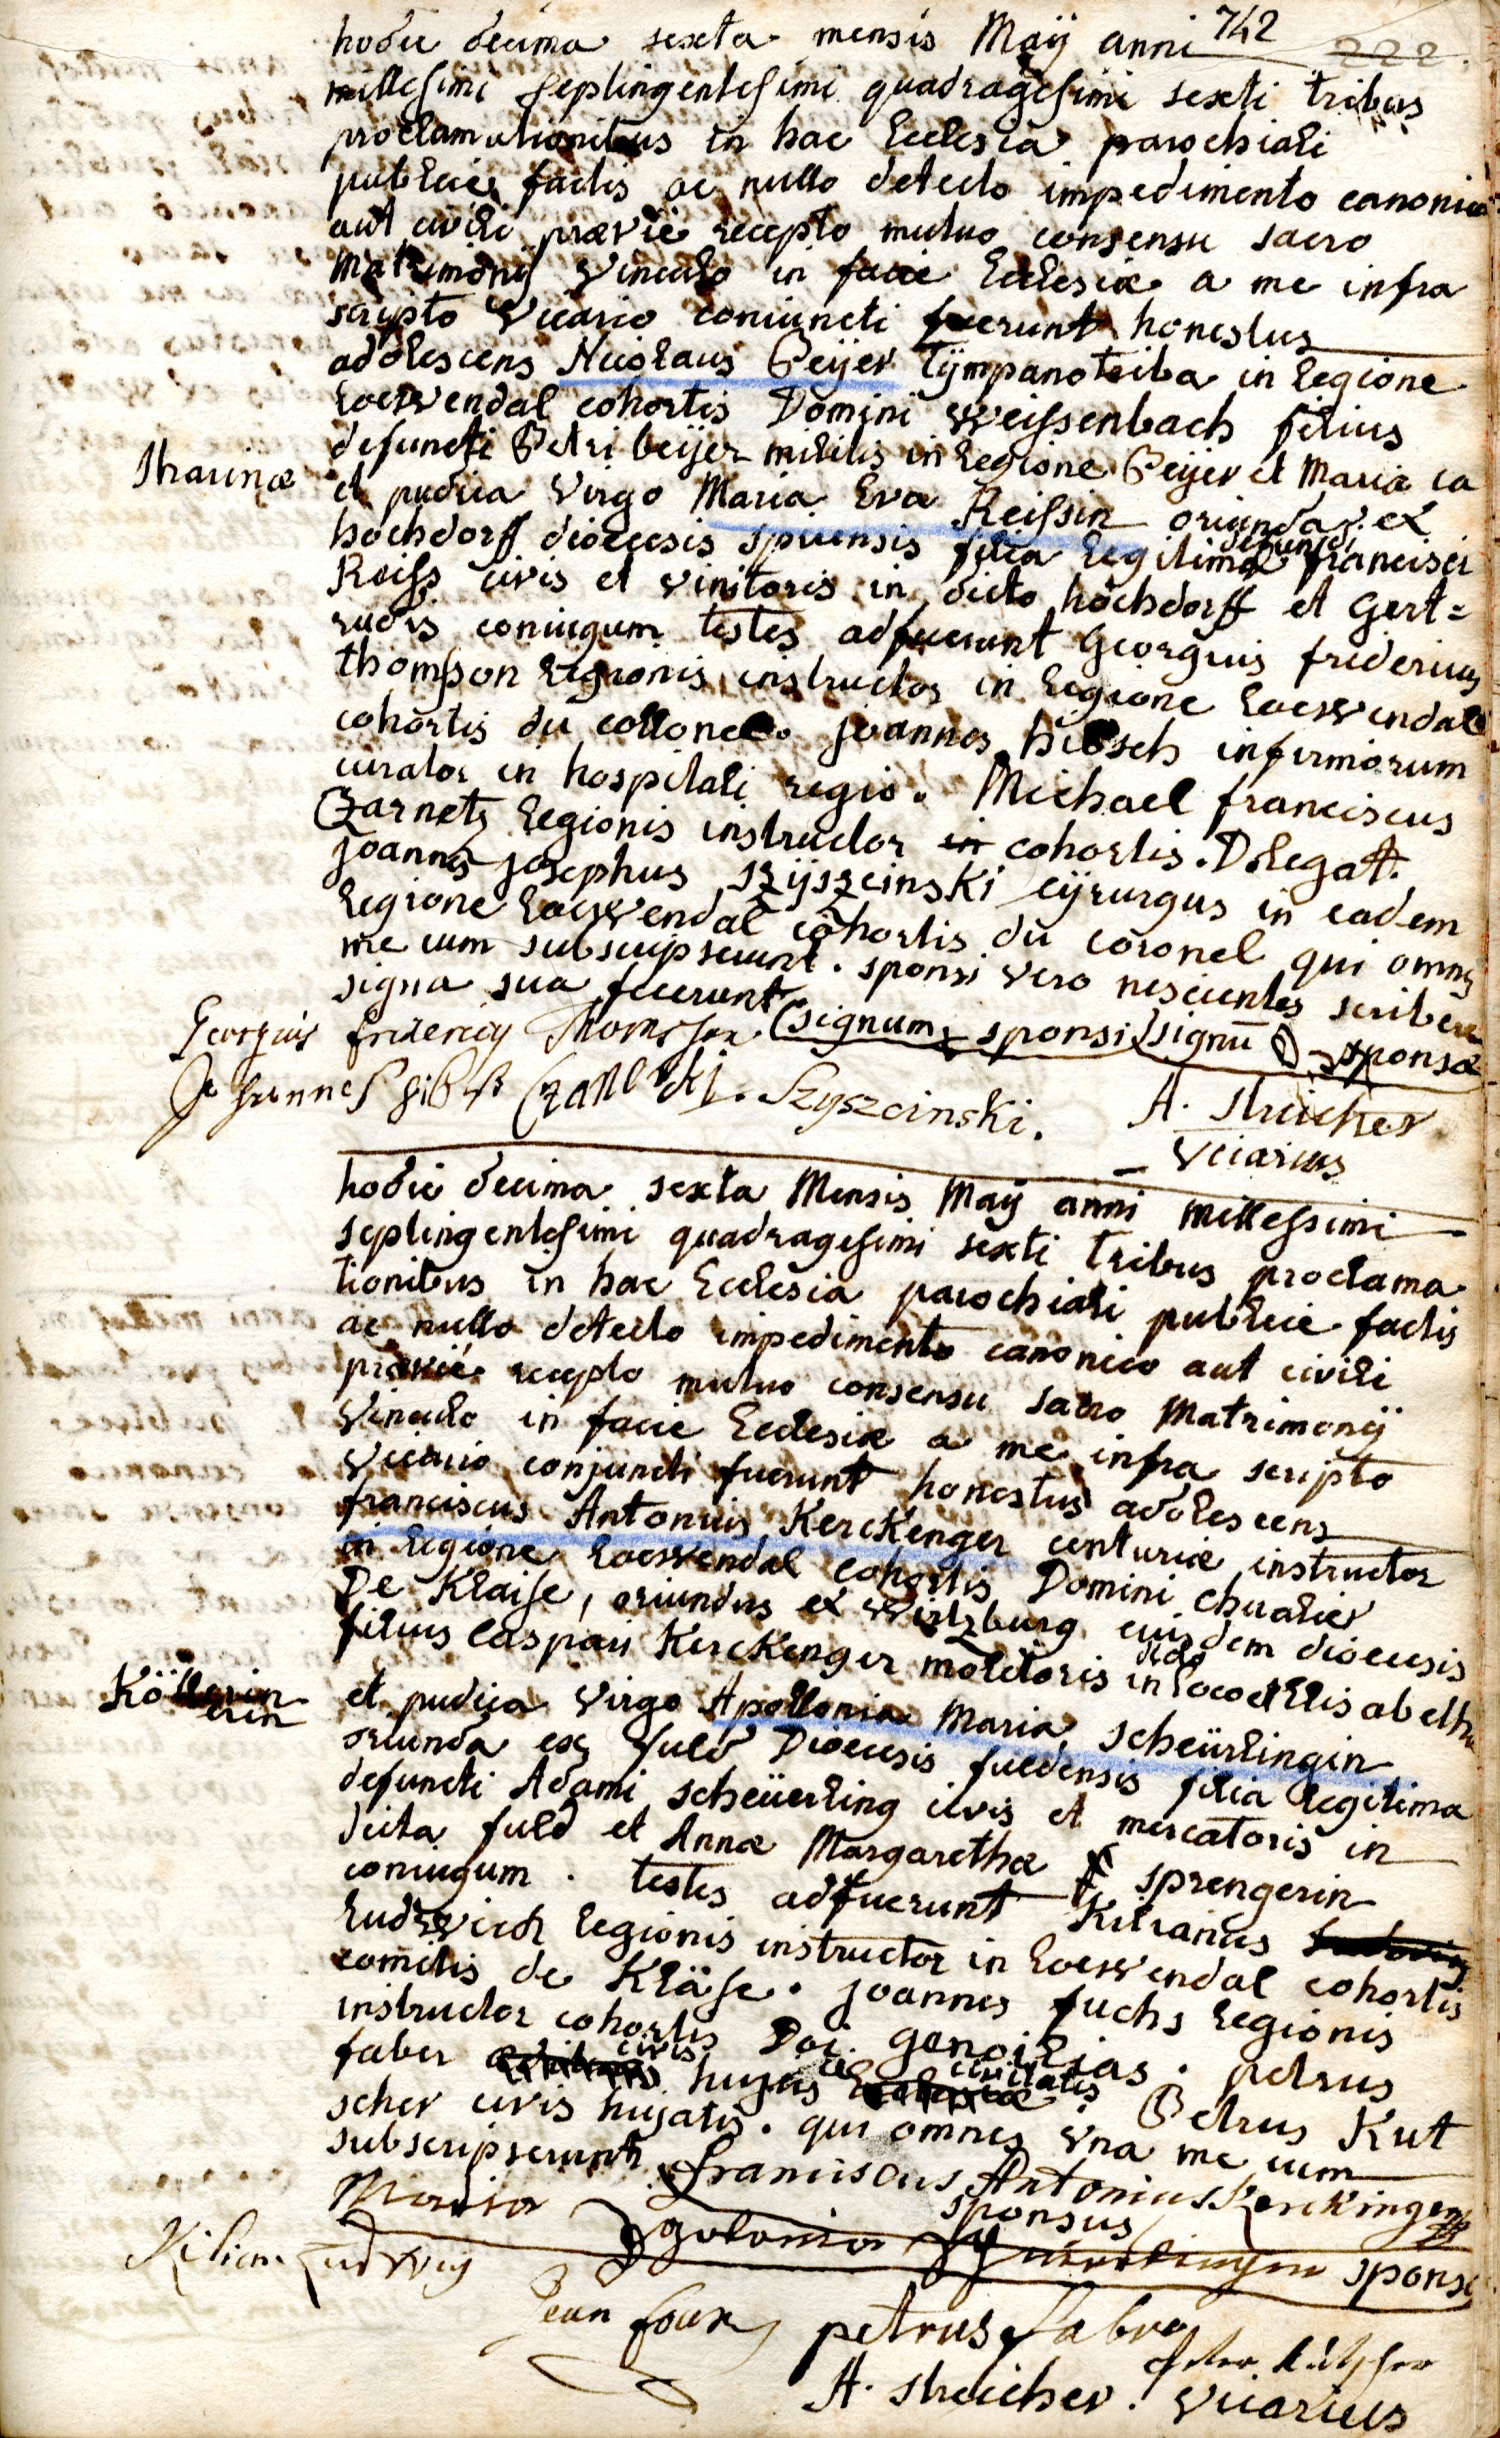 742
222.
hodie decima sexta mensis Maÿ anni
millesimi septingentesimi quadragesimi sexti tribus
proclamationibus in hac Ecclesia parochiali
publicè factis ac nullo detecto impedimento canonico
aut civili prævie recepto mutuo consensu sacro
Matrimonÿ vinculo in facie Ecclesiæ a me infra
scripto vicario coniuncti fuerunt honestus
adolescens Nicolaus Beÿer tÿmpanotriba in legione
Loewendal cohortis Domini Weissenbach filius
defuncti Petri beÿer militis in legione Beÿer et Mariæ ca
tharinæ
et pudica virgo Maria Eva Reissin oriunda ex
hochdorff diœcesis spirensis filia legitima defuncti francisci
Reiss civis et vinitoris in dicto hochdorff et Gert=
rudis coniugum testes adfuerunt Georgius fridericus
Thomson legionis instructor in legione Loewendal
cohortis du collonel. joannes hibsch infirmorum
curator in hospitali regio. Michael franciscus
Czarnetz legionis instructor in cohortis. D. legat.
joannes josephus szÿszcinski cÿrurgus in eadem
legione Loewendal cohortis du coronel qui omnes
me cum subscripserunt. sponsi vero nescientes scribere
signa sua fecerunt (signum sponsi) signū sponsæ
Georgius fridericq Thomson
Johannes Czarnetzki. Szyszcinski.
A. streicher
vicarius
hodie decima sexta Mensis Maÿ anni millessimi
septingentesimi quadragesimi sexti tribus proclama
tionibus in hac Ecclesia parochiali publicè factis
ac nullo detecto impedimento canonico aut civili
prævie recepto mutuo consensu sacro Matrimonÿ
vinculo in facie Ecclesiæ a me infra scripto
vicario conjuncti fuerunt honestus adolescens
franciscus Antonius Kerckenger centuriæ instructor
in legione Loewendal cohortis Domini chvalier
De Klaise, oriundus ex Wirtzburg eiusdem diœcesis
filius Caspari Kerckenger molitoris in loco et Elisabethæ
Köllerin
erin
et pudica virgo Apollonia Maria scheürlingin
oriunda ex fuld Diœcesis fuldensis filia legitima
defuncti Adami scheüerling civis et mercatoris in
dicta fuld et Annæ Margarethæ sprengerin
coniugum. testes adfuerunt Kilianus
Ludwich legionis instructor in Loewendal cohortis
comitis de Kläse. joannes fuchs legionis
instructor cohortis Doi genoilias. petrus
faber civis hujus civitatis Petrus Kut
scher civis hujatis. qui omnes una me cum
subscripserunt. franciscus Antonius Kerckinger
sponsus
Maria Apolonia sponsa
Kilian Ludwig
jean foux petrus fabre
A. streicher. vicarius